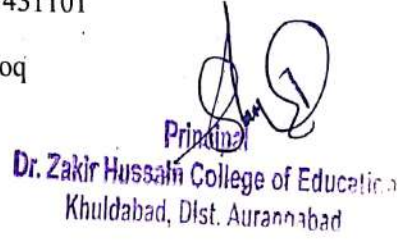 431101
oq
Principal
Dr. Zakir Hussain College of Education
Khuldabad, Dist. Aurangabad